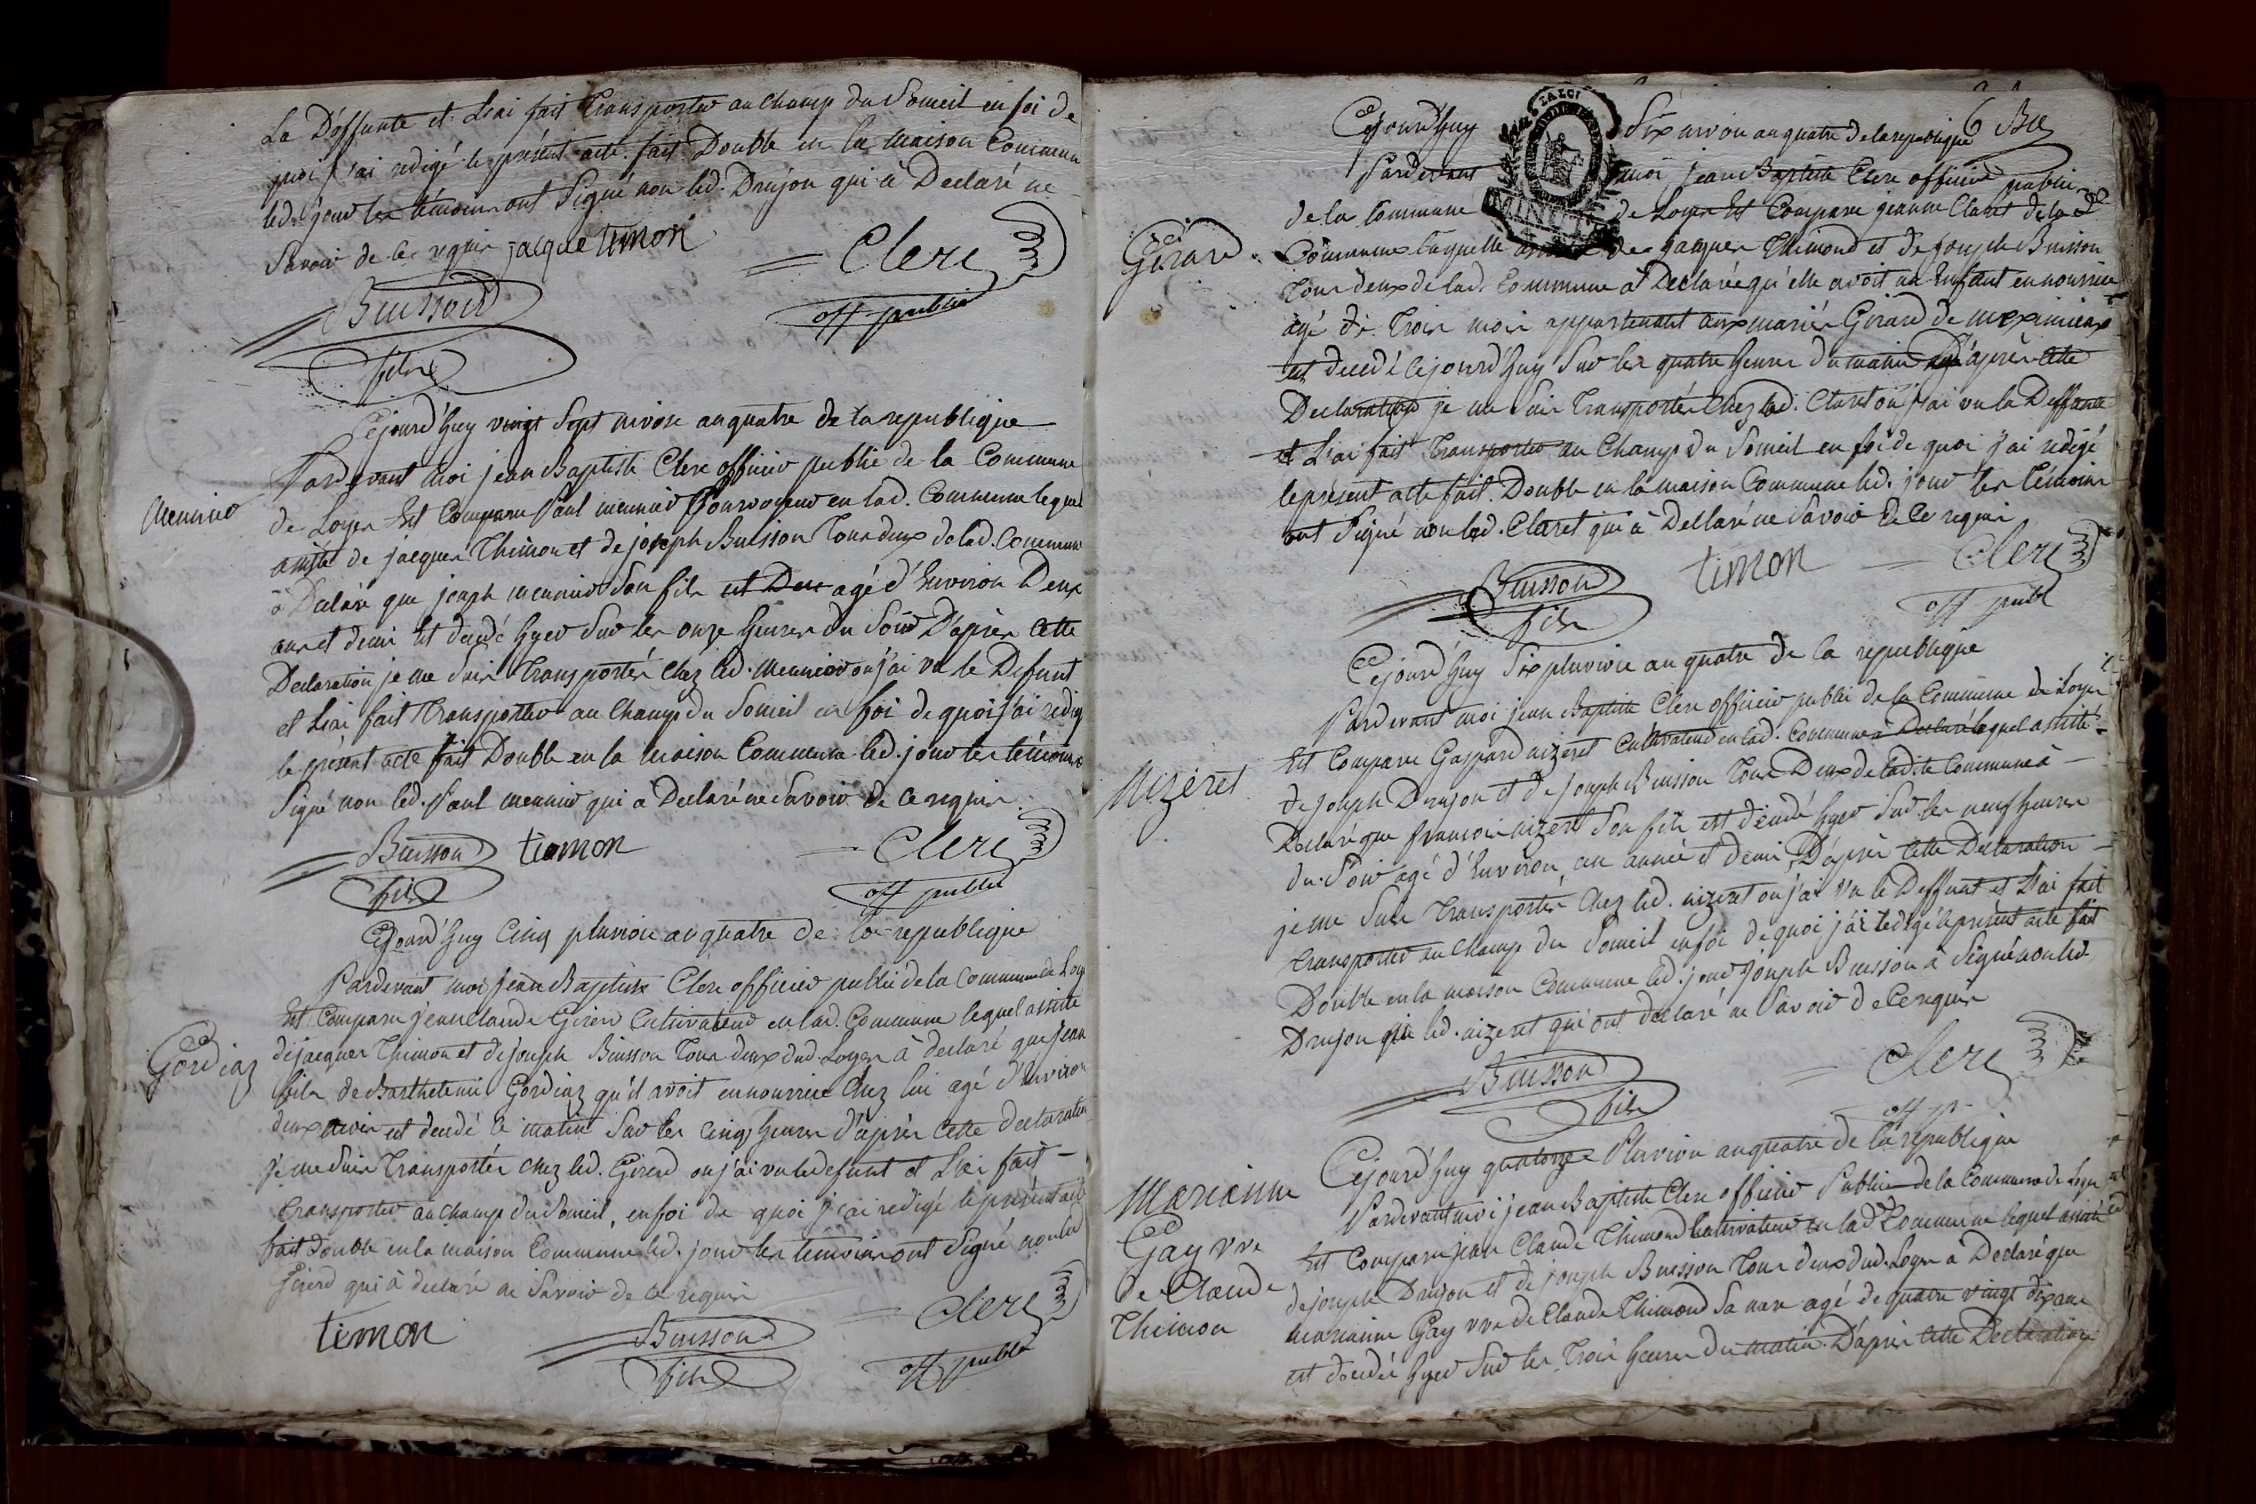 La Deffunte et L'ai fait Transporter au Champ du Someil en foi de
quoi j'ai redigé le présent acte fait Double en la maison Commune
led. jour les témoins ont Signé non led. Drujon qui à Declaré ne
Savoir de ce requis jacque timon
Clerc
Buisson
off public
fils
Cejourd'huy vingt Sept nivose an quatre de la republique
Pardevant moi jean Baptiste Clerc officier public de la Commune
Meunier
de Loyes Est Comparu Paul meunier en lad. Commune lequel
assisté de jacques Thimon et de joseph Buisson Tous deux de lad. Commune
à Declaré que joseph meunier Son fils est agé d'Environ Deux
ans et demi Est decedé hyer Sur les onze heures du Soir D'après Cette
Declaration je me Suis Transportés Chez led. meunier ou j'ai vu le Defunt
et L'ai fait Transporter au Champ du Someil en foi de quoi j'ai redigé
le présent acte fait Double en la maison Commune led. jour les témoins
Signé non led. Paul meunier qui a Declaré ne Savoir de ce requis
Buisson timon Clerc
fils off public
Cejourd'huy Cinq pluviose an quatre de la republique
Pardevant moi jean Baptiste Clerc officier public de la Commune de Loyes
Est Comparu jean Claude Girerd Cultivateur en lad. Commune lequel assisté
Gordiaz
de jacques Thimon et de joseph Buisson Tous deux dud. Loyes à declaré que jean
fils de Barthelemi Gordiaz qu'il avoit en nourrice Chez lui agé d'Environ
deux mois est decedé ce matin Sur les Cinq heures d'après Cette declaration
je me Suis Transportés chez led. Girerd ou j'ai vu le defunt et L'ai fait
Transporter au champ du Someil, en foi de quoi j'ai redigé le présent acte
fait double en la maison Commune led. jour les temoins ont Signé non led
Girerd qui à declaré ne Savoir de ce requis
Clerc
timon Buisson
fils off public
6
Cejourd'huy Six an quatre de la republique
Pardevant moi jean Baptiste Clerc officier public
MINUTE
de la Commune de Loyes Est Comparu jeanne Claret de lad
Girard
Commune Laquelle de jacques Thimond et de joseph Buisson
Tous deux de lad. Commune à Declarée qu'elle avoit un Enfant en nourrice
agé de Trois mois appartenant aux mariés Girard de meximieux
est decedé Cejourd'huy Sur les quatre heures du matin D'après Cette
Declaration je me Suis Transportés Chez lad. Claret ou j'ai vu la Deffunte
et L'ai fait Transporter au Champ du Someil en foi de quoi j'ai redigé
le présent acte fait Double en la maison Commune led. jour les Témoins
ont Signé non lad. Claret qui à Declaré ne Savoir de ce requis
Buisson timon Clerc
fils off publ
Cejourd'huy Six pluviose an quatre de la republique
Pardevant moi jean Baptiste Clerc officier public de la Commune de Loyes
Est Comparu Gaspard nizeret Cultivateur en lad. Commune à Declaré lequel assisté
Nizeret
de joseph Drujon et de joseph Buisson Tous Deux de lad.te Commune à
Declaré que francois nizeret Son fils est décedé hyer Sur les neuf heures
du Soir agé d'Environ un année et demi, D'après Cette Declaration
je me Suis Transportés Chez led. nizeret ou j'ai vu le Deffunt et L'ai fait
Transporter au Champ du Someil en foi de quoi j'ai redigé le présent acte fait
Double en la maison Commune led. jour joseph Buisson à Signé non led
Drujon led. nizeret qui ont declaré ne Savoir de Ce requis
Clerc
Buisson
fils
Cejourd'huy quatorze Pluviose an quatre de la republique
Marianne
Pardevant moi jean Baptiste Clerc officier Public de la Commune de Loyes
Gay vve
Est Comparu jean Claude Thimond Cultivateur en lad. Commune lequel assisté
de Claude
de joseph Drujon et de joseph Buisson Tous deux dud. Loyes à Declaré que
Thimon
marianne Gay vve de Claude Thimond Sa mere agé de quatre vingt dix ans
est decedée hyer Sur les Trois heures du matin D'après Cette Declaration